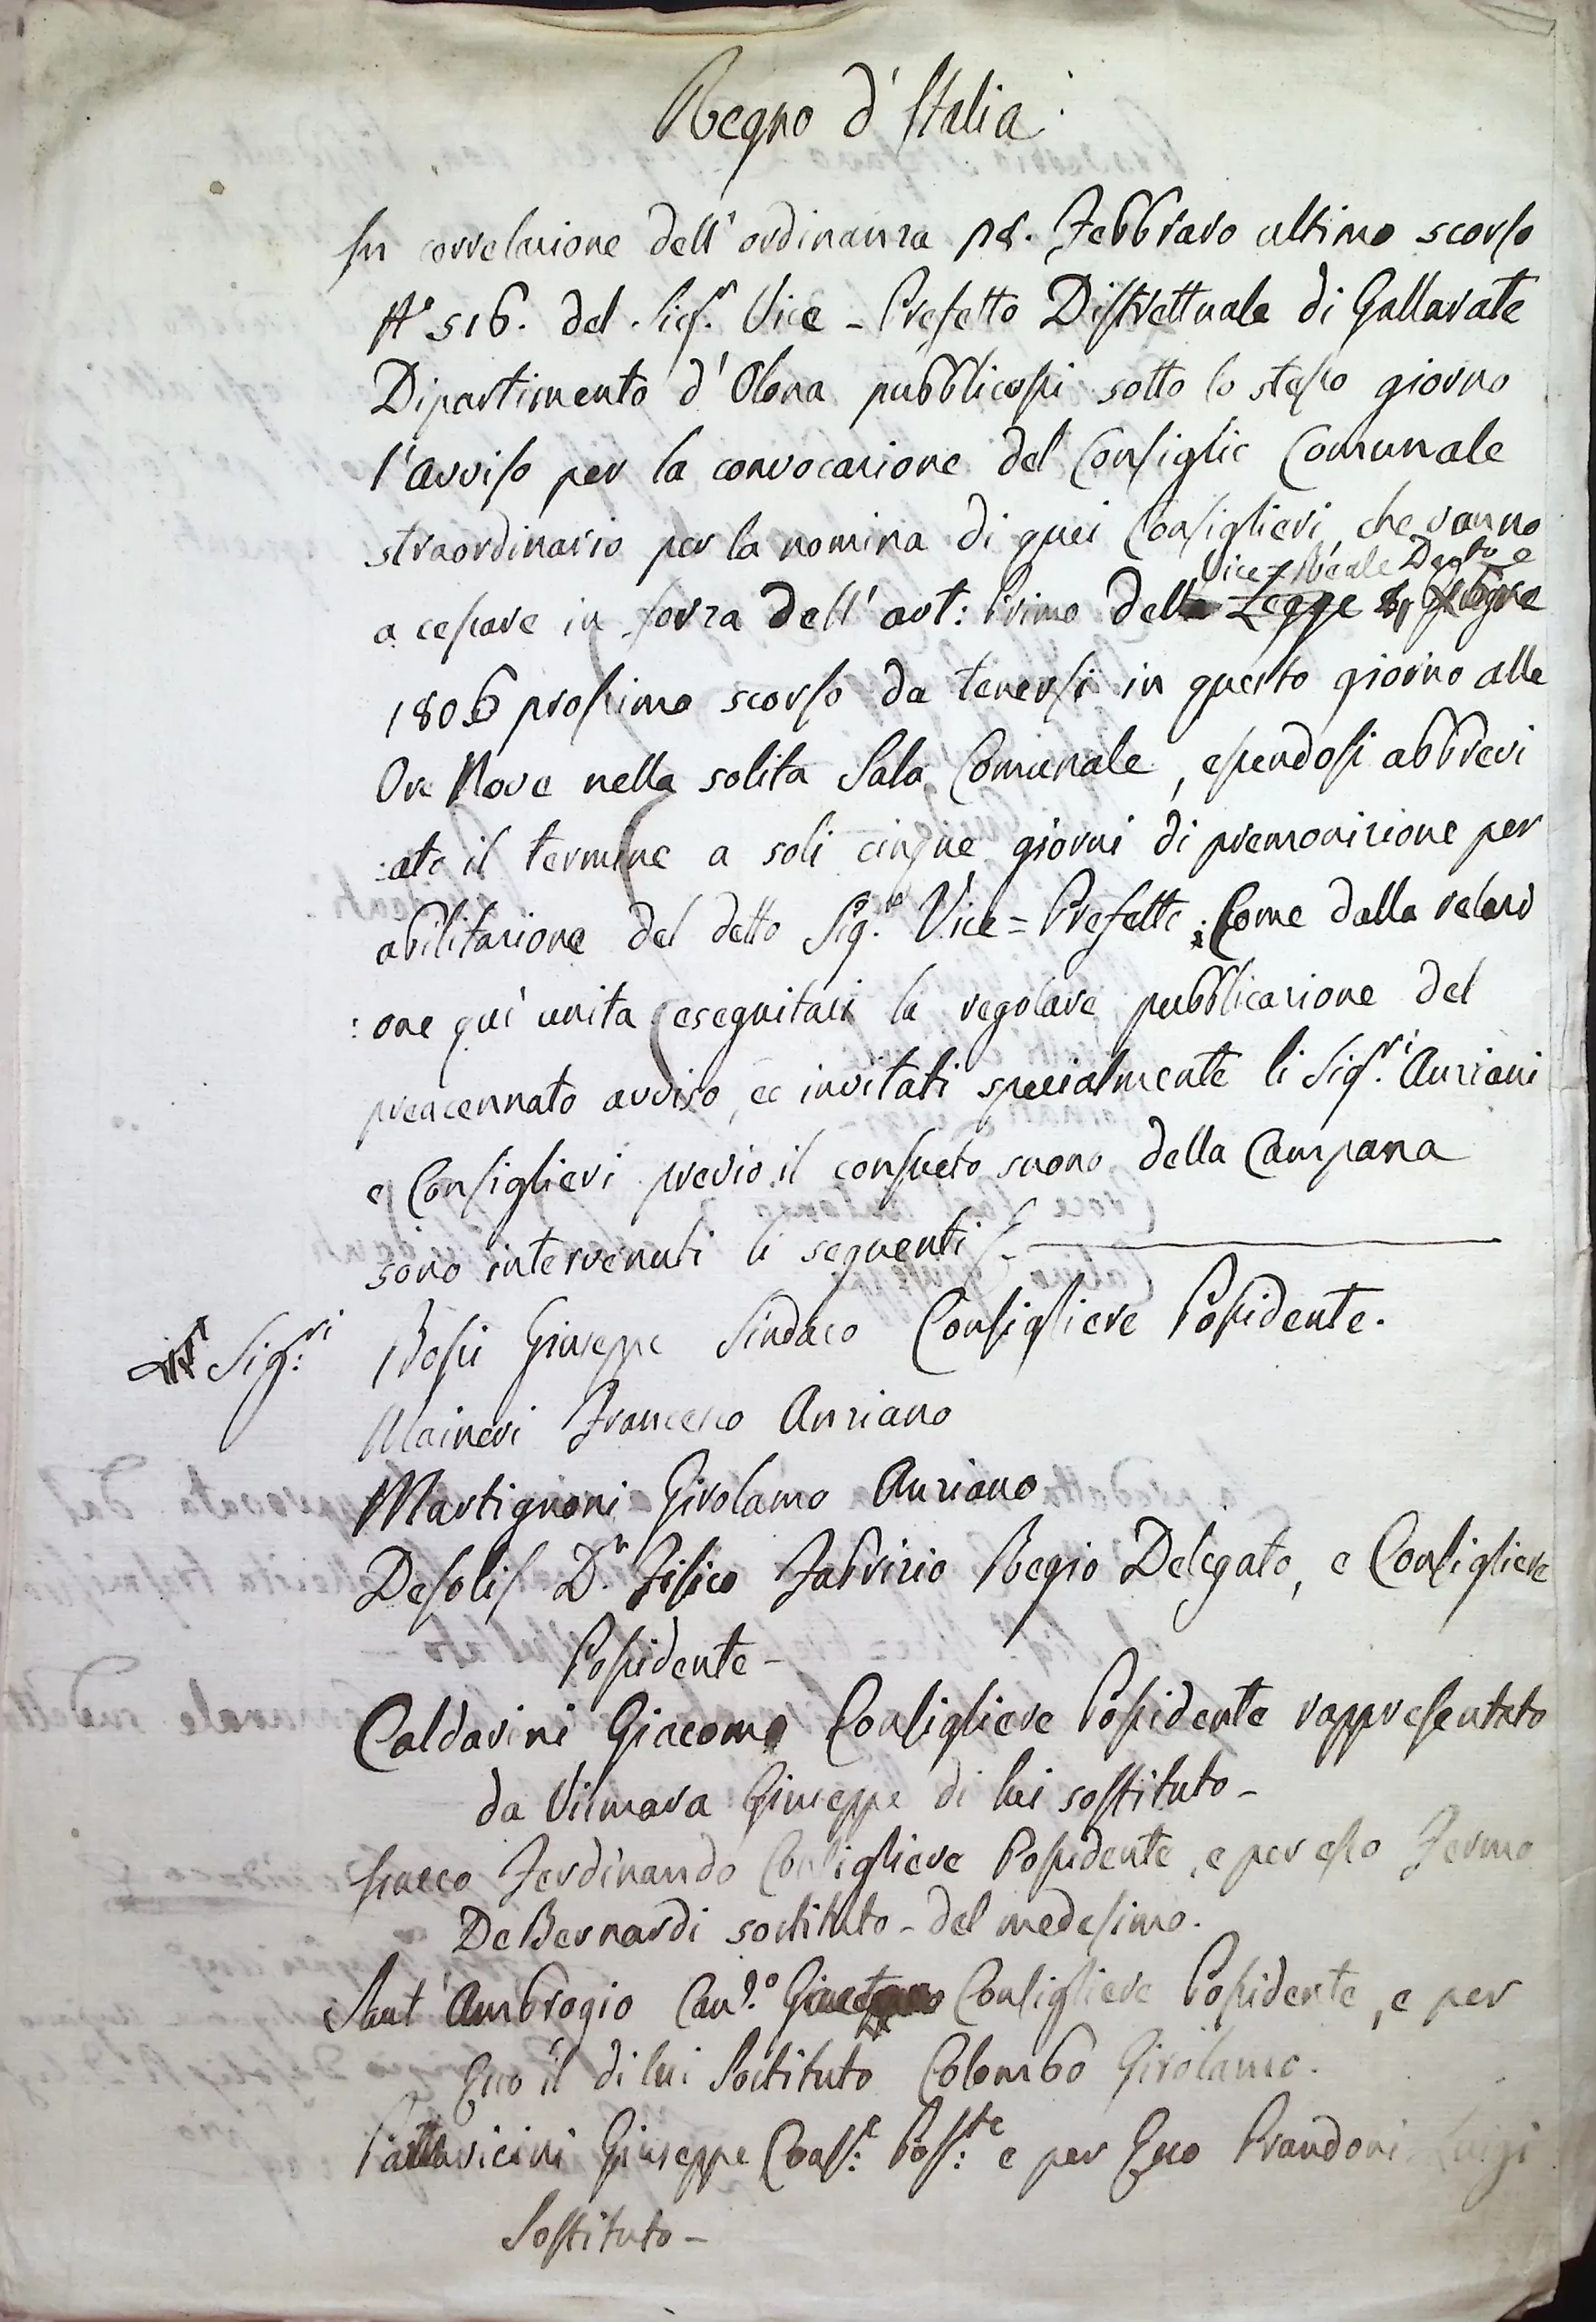 Regno d'Italia.
In correlazione dell'ordinanza 18. Febbraro ultimo scorso
N.° 516. del Sig.r Vice-Prefetto Distrettuale di Gallarate
Dipartimento d'Olona pubblicossi sotto lo stesso giorno
l'avviso per la convocazione del Consiglio Comunale
straordinario per la nomina di quei Consiglieri, che vanno
Vice-Reale Dec.to e
a cessare in forza dell'art: Primo della Legge
1806 prossimo scorso da tenersi in questo giorno alle
Ore Nove nella solita Sala Comunale, essendosi abbrevi
:ato il termine a soli cinque giorni di premonizione per
abilitazione del detto Sig.re Vice=Prefetto; Come dalla relazi
:one qui unita eseguitasi la regolare pubblicazione del
preaccennato avviso, ec invitati specialmente li Sig.ri Anziani
e Consiglieri previo il consueto suono della Campana
sono intervenuti li seguenti
Sig:ri Bossi Giuseppe Sindaco Consigliere Possidente.
Maineri Francesco Anziano
Martignoni Girolamo Anziano
Desolis D.r Fisico Fabrizio Regio Delegato, e Consigliere
Possidente-
Caldarini Giacomo Consigliere Possidente rappresentato
da Vismara Giuseppe di lui sostituto-
Isacco Ferdinando Consigliere Possidente, e per esso Fermo
DeBernardi sostituto-del medesimo.
Sant'Ambrogio Can.co Consigliere Possidente, e per
Esso il di lui Sostituto Colombo Girolamo.
Pallavicini Giuseppe Cons:e Poss:te e per Esso Prandoni Luigi
Sostituto-